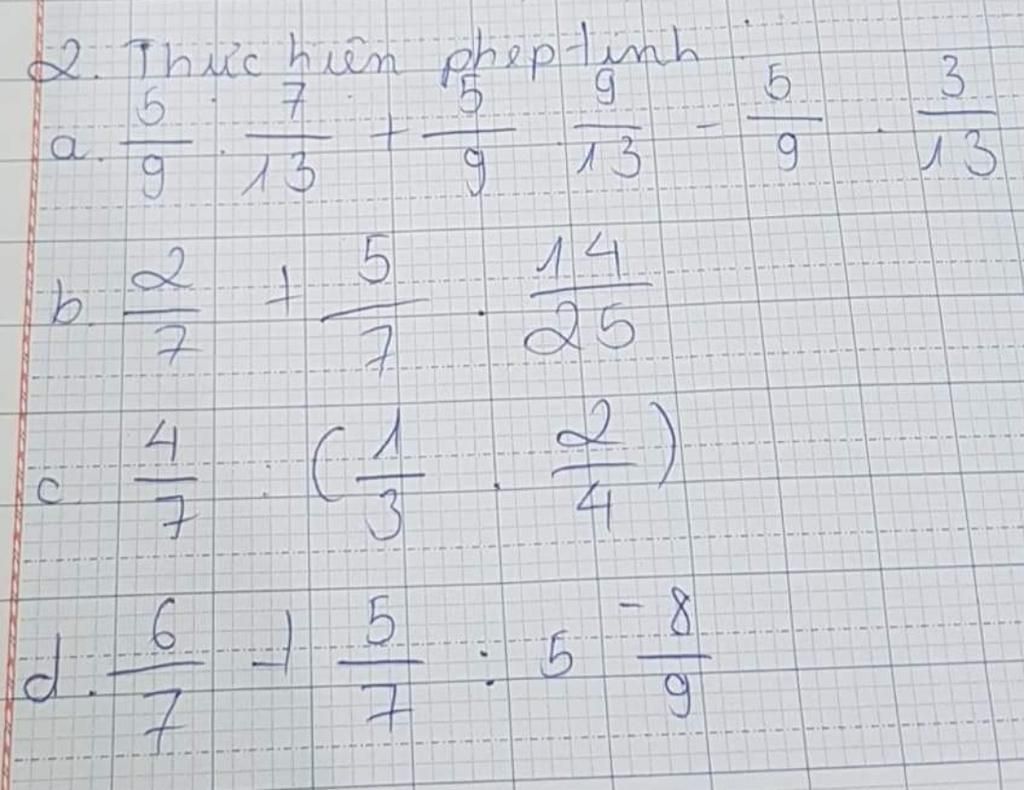 2. Thực hiện phép tính
a. 5/9 . 7/13 + 5/9 . 9/13 - 5/9 . 3/13
b. 2/7 + 5/7 . 14/25
c. 4/7 . (1/3 . 2/4)
d. 6/7 + 5/7 : 5 - 8/9